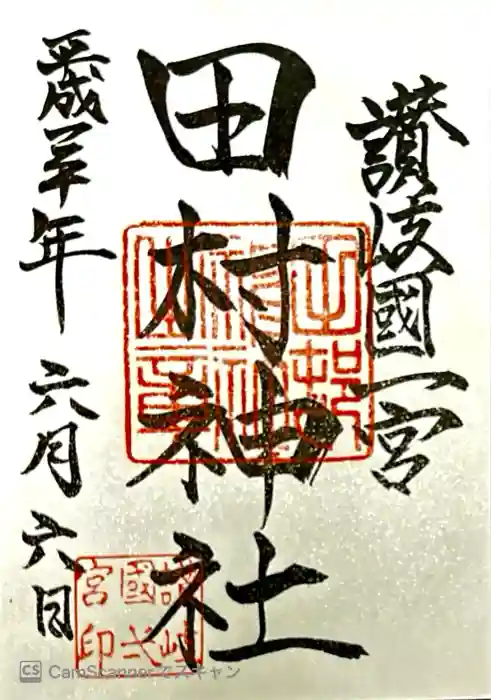 讃岐國一宮
田村神社
平成三十年 六月六日
讃岐國弌宮印
CamScannerでスキャン